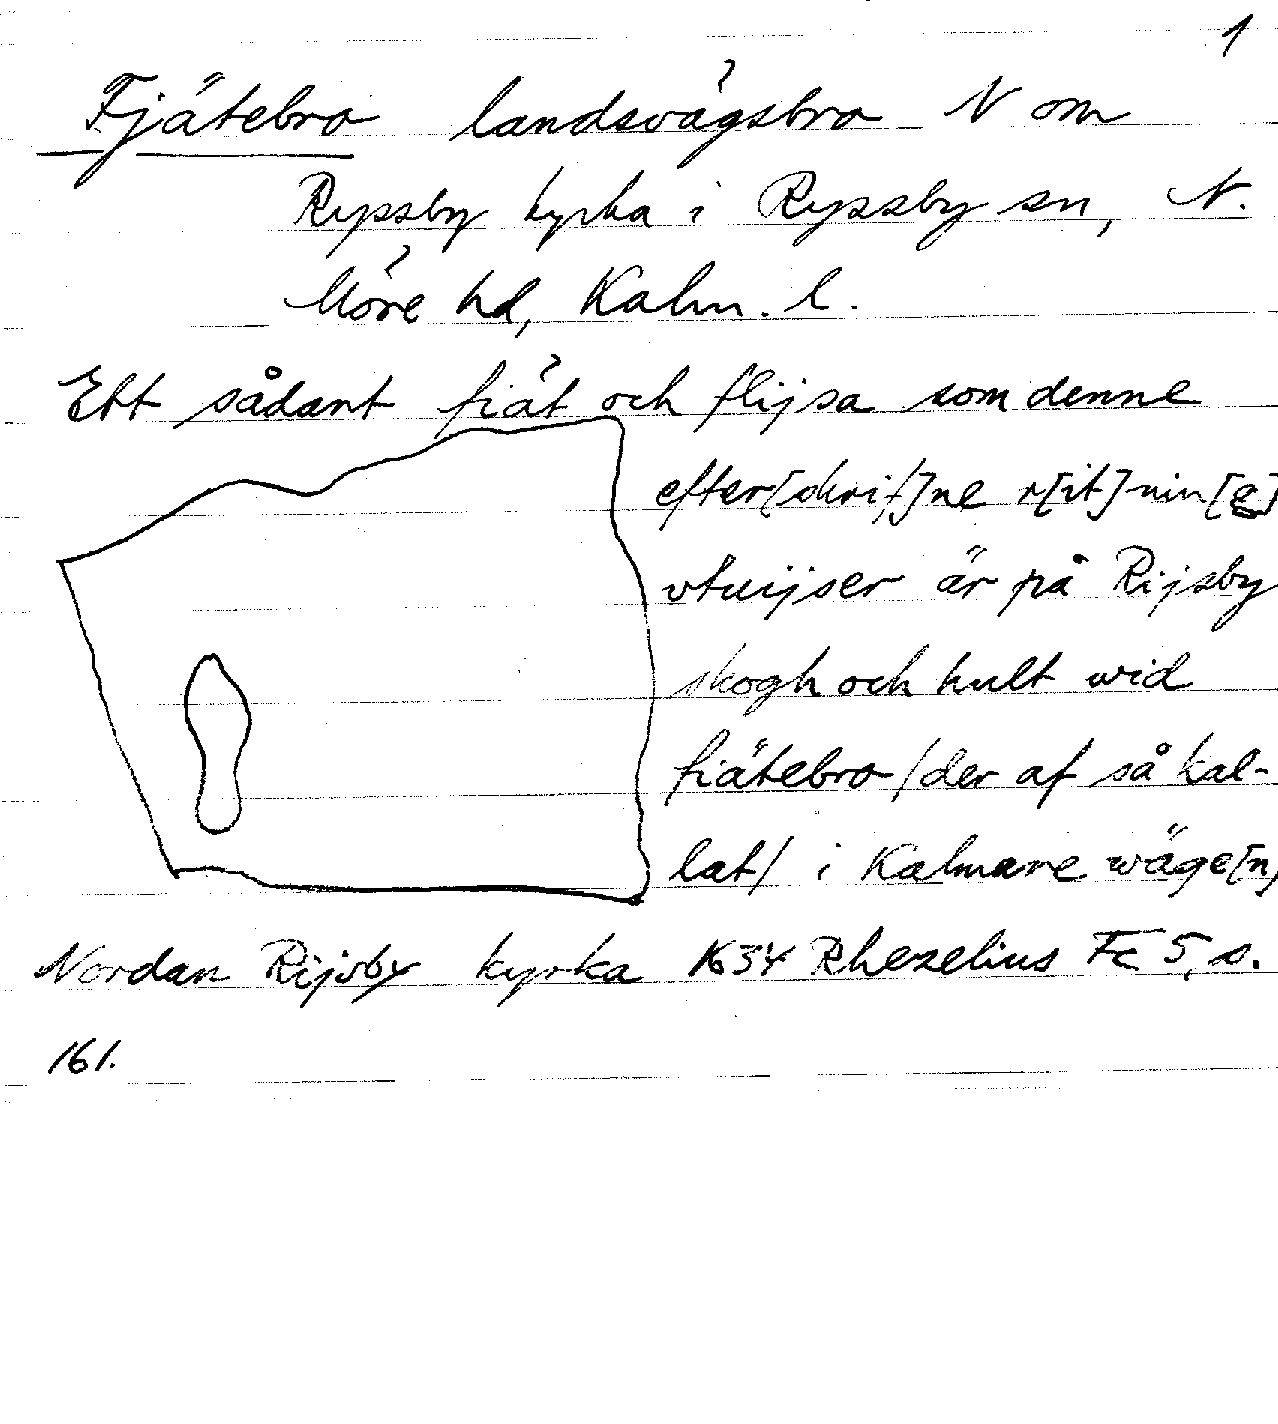 1
Fjätebro landsvägsbro N om
Ryssby kyrka i Ryssby sn, N.
Möre hd, Kalm. l.
Ett sådant fiät och flijsa som denne
efter[skrif]ne r[it]nin[g]
vtuijser är på Rijsby
skogh och hult wid
fiätebro /der af så kal-
lat/ i Kalmare wäge[n]
Nordan Rijsby kyrka 1634 Rhezelius Fc 5, s.
161.